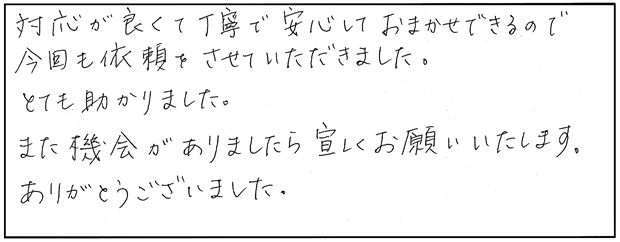 対応が良くて丁寧で安心しておまかせできるので
今回も依頼をさせていただきました。
とても助かりました。
また機会がありましたら宜しくお願いいたします。
ありがとうございました。